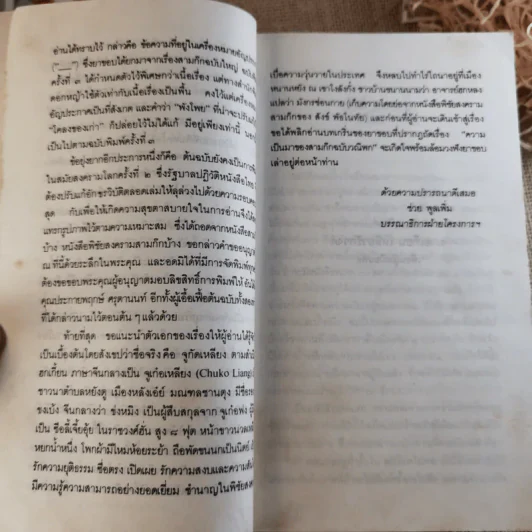 อ่านได้ทราบไว้ กล่าวคือ ข้อความที่อยู่ในเครื่องหมายอัญประ
("__") ซึ่งยาขอบได้ยกมาจากสามก๊กฉบับใหญ่
ครั้งที่ ๓ ได้กำหนดตัวไว้พิเศษกว่าเนื้อเรื่อง แต่ทางสำนัก
ดอกหญ้าใช้ตัวเท่ากับเนื้อเรื่องเป็นพื้น คงไว้แต่เครื่อง
อัญประกาศเป็นที่สังเกต และคำว่า "ฟังโพย" ที่น่าจะปรับ
"โคลงของเก่า" ก็ปล่อยไว้ไม่ได้แก้ มีอยู่เพียงเท่านี้
เป็นไปตามฉบับพิมพ์ครั้งที่ ๓
ข้อยุ่งยากอีกประการหนึ่งก็คือ ต้นฉบับยังคงเป็นการ
ในสมัยสงครามโลกครั้งที่ ๒ ซึ่งรัฐบาลปฏิวัติหนังสือไทย
ต้องปรับแก้อักขรวิบัติตลอดเล่มให้ลุล่วงไปด้วยความรอบ
สุด กับเพื่อให้เกิดความสุขตาสบายใจในการอ่านจึงได้
แทรกรูปภาพไว้ตามความเหมาะสม ซึ่งได้ถอดจากหนังสือ
บ้าง หนังสือพิชัยสงครามสามก๊กบ้าง ขอกล่าวคำขออนุญา
ณ ที่นี้ด้วยระลึกในพระคุณ และอดมิได้ที่มีการจัดพิมพ์
ต้องขอขอบพระคุณผู้อนุญาตมอบลิขสิทธิ์การพิมพ์ให้
คุณประกายพฤกษ์ ครุตานนท์ อีกทั้งผู้เอื้อเฟื้อต้นฉบับทั้งสอง
ที่ได้กล่าวนามไว้ตอนต้น ๆ แล้วด้วย
ท้ายที่สุด ขอแนะนำตัวเอกของเรื่องให้ผู้อ่านได้รู้
เป็นเบื้องต้นโดยสังเขปว่าชื่อจริง คือ จูกัดเหลียง ตามสำ
ฮกเกี้ยน ภาษาจีนกลางเป็น จูเก่อเหลียง (Chuko Liang)
ชาวนาตำบลหยังตู เมืองหลังเอ๋ย์ มณฑลชานตุง มีชื่อ
ขงเบ้ง จีนกลางว่า ข่งหมิง เป็นผู้สืบสกุลจาก จูเก่อฟง ผู้
เป็น ซือลี้เจี้ยอุ้ย ในราชวงศ์ฮั่น สูง ๘ ฟุต หน้าขาวนวล
หยกน้ำหนึ่ง โพกผ้ามีไหมห้อยระย้า ถือพัดขนนกเป็นนิตย์
รักความยุติธรรม ซื่อตรง เปิดเผย รักความสงบและความสัน
มีความรู้ความสามารถอย่างยอดเยี่ยม ชำนาญในพิชัยสง
เบื่อความวุ่นวายในประเทศ จึงหลบไปทำไร่ไถนาอยู่ที่เมือง
หนานหยัง ณ เขาโงลังกั๋ง ชาวบ้านขนานนามว่า อาจารย์ฮกหลง
แปลว่า มังกรซ่อนกาย (เก็บความโดยย่อจากหนังสือพิชัยสงคราม
สามก๊กของ สังข์ พัธโนทัย) และก่อนที่ผู้อ่านจะเดินเข้าสู่เรื่อง
ขอได้พลิกอ่านบทเกริ่นของยาขอบที่ปรากฏถัดเรื่อง "ความ
เป็นมาของสามก๊กฉบับวณิพก" จะเกิดใจพร้อมล้อมวงฟังยาขอบ
เล่าอยู่ต่อหน้าท่าน
ด้วยความปรารถนาดีเสมอ
ช่วย พูลเพิ่ม
บรรณาธิการฝ่ายโครงการฯ